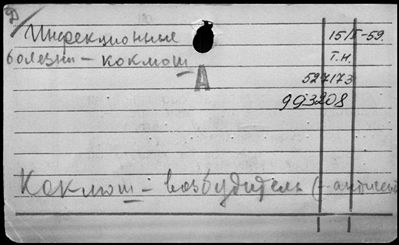 Д
Инфекционные
болезни – коклюш
А
15/I-59.
Т.Н.
527173
993208
Коклюш – возбудитель (-антиген